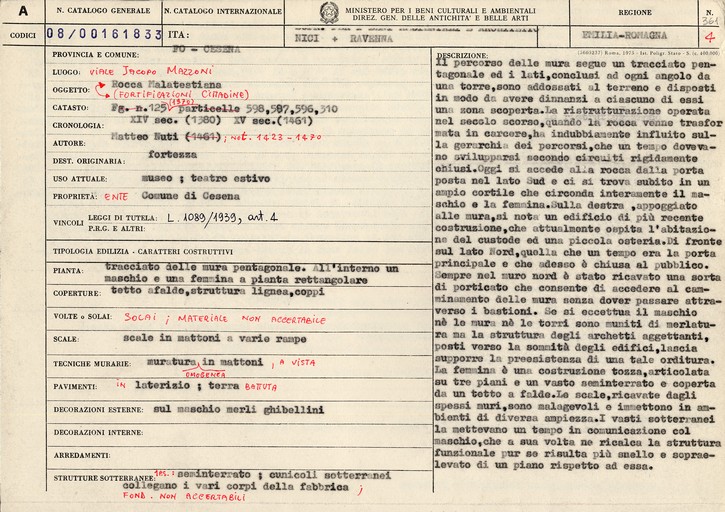 A
N. CATALOGO GENERALE
N. CATALOGO INTERNAZIONALE
MINISTERO PER I BENI CULTURALI E AMBIENTALI
DIREZ. GEN. DELLE ANTICHITA' E BELLE ARTI
REGIONE
N.
361
CODICI
08/00161833
ITA:
NICI + RAVENNA
EMILIA-ROMAGNA
4
PROVINCIA E COMUNE: FO - CESENA
LUOGO: VIALE JACOPO MAZZONI
OGGETTO: Rocca Malatestiana
(FORTIFICAZIONI CITTADINE)
CATASTO: Fg. n.125 (1970) particelle 598,587,596,310
CRONOLOGIA: XIV sec. (1380) XV sec.(1461)
AUTORE: Matteo Nuti (1461); not. 1423-1470
DEST. ORIGINARIA: fortezza
USO ATTUALE: museo ; teatro estivo
PROPRIETÀ: ENTE Comune di Cesena
VINCOLI
LEGGI DI TUTELA: L. 1089/1939, art. 1
P.R.G. E ALTRI:
TIPOLOGIA EDILIZIA - CARATTERI COSTRUTTIVI
PIANTA: tracciato delle mura pentagonale. All'interno un
maschio e una femmina a pianta rettangolare
COPERTURE: tetto afalde,struttura lignea,coppi
VOLTE o SOLAI: SOLAI ; MATERIALE NON ACCERTABILE
SCALE: scale in mattoni a varie rampe
TECNICHE MURARIE: muratura in mattoni , A VISTA
OMOGENEA
PAVIMENTI: IN laterizio ; terra BATTUTA
DECORAZIONI ESTERNE: sul maschio merli ghibellini
DECORAZIONI INTERNE:
ARREDAMENTI:
STRUTTURE SOTTERRANEE: seminterrato ; cunicoli sotterranei
collegano i vari corpi della fabbrica ;
FOND. NON ACCERTABILI
DESCRIZIONE:
(5605237) Roma, 1975 - Ist. Poligr. Stato - S. (c. 400.000)
Il percorso delle mura segue un tracciato pen-
tagonale ed i lati,conclusi ad ogni angolo da
una torre,sono addossati al terreno e disposti
in modo da avere dinnanzi a ciascuno di essi
una zona scoperta.La ristrutturazione operata
nel secolo scorso,quando la rocca venne trasfor
mata in carcere,ha indubbiamente influito sul-
la gerarchia dei percorsi,che un tempo doveva-
no svilupparsi secondo circuiti rigidamente
chiusi.Oggi si accede alla rocca dalla porta
posta nel lato Sud e ci si trova subito in un
ampio cortile che circonda interamente il ma-
schio e la femmina.Sulla destra ,appoggiato
alle mura,si nota un edificio di più recente
costruzione,che attualmente ospita l'abitazio-
ne del custode ed una piccola osteria.Di fronte
sul lato Nord,quella che un tempo era la porta
principale e che adesso è chiusa al pubblico.
Sempre nel muro nord è stato ricavato una sorta
di porticato che consente di accedere al cam-
minamento delle mura senza dover passare attra-
verso i bastioni. Se si eccettua il maschio
nè le mura nè le torri sono muniti di merlatu-
ra ma la struttura degli archetti aggettanti,
posti verso la sommità degli edifici,lascia
supporre la preesistenza di una tale orditura.
La femmina è una costruzione tozza,articolata
su tre piani e un vasto seminterrato e coperta
da un tetto a falde.Le scale,ricavate dagli
spessi muri,sono malagevoli e immettono in am-
bienti di diversa ampiezza.I vasti sotterranei
la mettevano un tempo in comunicazione col
maschio,che a sua volta ne ricalca la struttura
funzionale pur se risulta più snello e soprae-
levato di un piano rispetto ad essa.